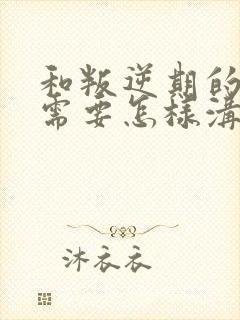 和叛逆期的
需要怎样溝
沐衣衣